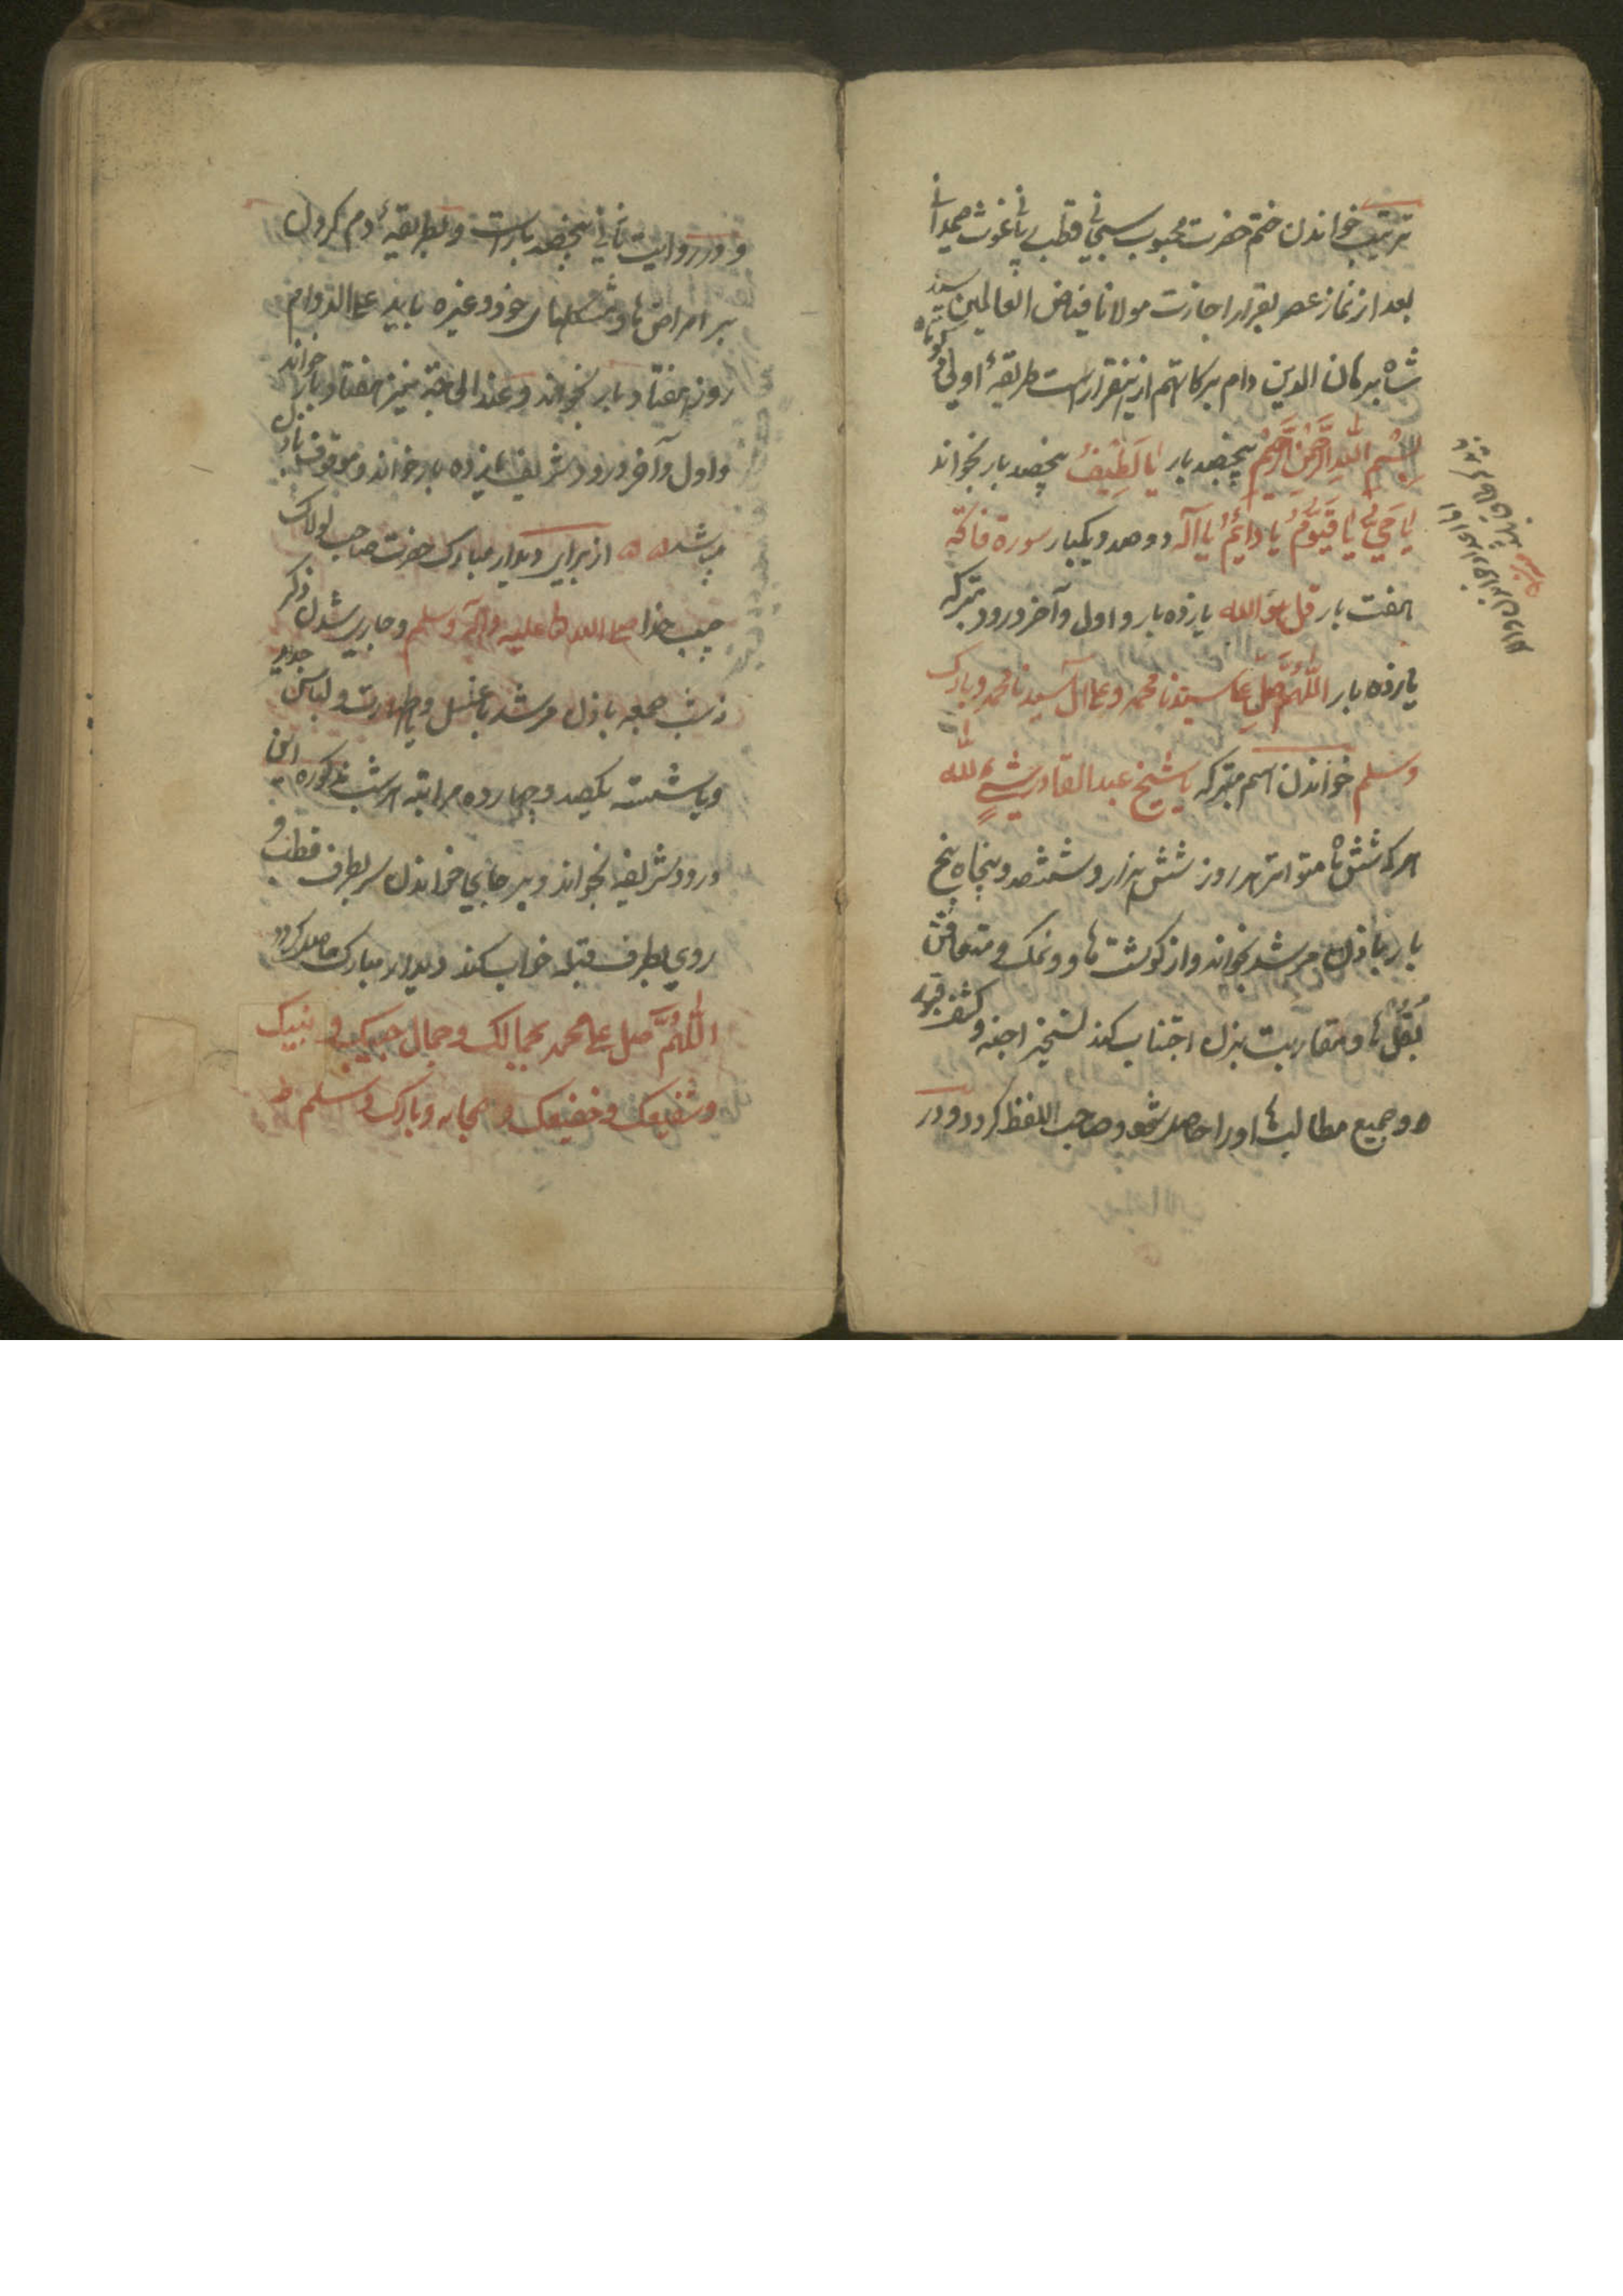 ترتیب خواندن ختم حضرت محبوب سبحانی قطب ربانی غوث صمدانی
بعد از نماز عصر بقرار اجازت مولانا فیاض العالمین سید
شاه برهان الدین دام برکاتهم ازین قرار است طریقهٔ اولی
بِسْمِ اللهِ الرَّحْمٰنِ الرَّحِیْمِ پنجصد بار یا لَطِیْفُ پنجصد بار بخواند
یا حَیُّ یا قَیُّوْمُ یا دایِمُ یا اَللّٰه دوصد و یکبار سورة فاتحه
هفت بار قل هو الله یازده بار و اول و آخر درود متبرکه
یازده بار اَللّٰهُمَّ صَلِّ عَلی سیدنا محمد و علی ال سیدنا محمد و بارک
وسلم خواندن اسم متبرکه یا شیخ عبد القادر شیءٍ لله
هرکه شش ماه متواتر هر روز شش هزار و ششصد و پنجاه پنج
بار باذن مرشد بخواند و از گوشت ها و نمک و
بقل ها و مقاربت بزن اجتناب کند تسخیر اجنه و کشف قبور
و جمیع مطالب ها او را حاصل شود و صاحب اللفظ گردد و در
و در روایت ثانی پنجصد بار است و بطریقهٔ دم کردن
بر امراض ها و مشکلهای خود و غیره باید علی الدوام
روز هفتاد بار بخواند و عند الحاجة نیز هفتاد بار خواند
و اول و آخر درود شریف یازده بار خواند و موقوف باذن
مرشد از برای دیدار مبارک حضرت صاحب لولاک
حبیب خدا صلی الله علیه و آله وسلم و جاری شدن ذکر
در شب جمعه باذن مرشد با غسل و با طهارت و لباس جدید
و با نشسته یکصد و چهارده مراتبه هر شب مذکوره این
درود شریف بخواند و بر جای خواندن سر بطرف قطب و
روی بطرف قبله خواب کند دیدار مبارک حاصل گردد
اللّٰهُمَّ صل علی محمد بجمالک و جمال حبیبک و نبیک
و شفیعک و و صحابه و بارک وسلم